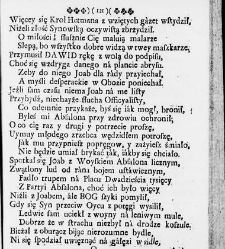 ( 121 )
Więcey się Krol Hetmana z wziętych gązet wstydził,
Niżeli złość Synowską oczywistą zbrzydził.
O miłości! słusznie Cię maluią malarze
Slepą, bo wszystko dobre widzą w twey maszkarze,
Przymusił DAWID rękę z wolą do podpisu,
Choć się wzdryga danego na plancie abrysu.
Zeby do niego Joab dla rády przyiechał,
A myśli desperackie w Obozie poniechał.
Jeśli sam czasu niema Joab na me listy
Przybydź, niechayże słucha Officyalisty,
Co odemnie przykaże, byś się iak mogł, bronił,
Byleś mi Absalona przy zdrowiu ochronił;
O co cię raz y drugi y potrzecie proszę,
Uymuy młodego zrzebca wędzidłem potroszę,
Jak mu przypnieśz popręgow, y zażyieśz śmiało,
Nie będzie umiał brykać tak, iákby się chciało.
Spotkał się Joab z Woyskiem Absalona licznym,
Zwątlony lud od rána boiem ustáwicznym,
Padło trupem na Placu Dwadzieścia tysięcy
Z Partyi Absalona, choć ich było więcey.
Nászli z Joabem, iák BOG szyki pomylił,
Gdy się Syn przeciw Oycu z potęgi wysilił,
Ledwie sam uciekł z woyny na leniwym mule,
Dobrze że w strachu niezbył na drodze koszule.
Bieżał z obarącz biiąc nierozumne bydle,
Ni się spodział uwięznąć na gáłęzi w sidle,